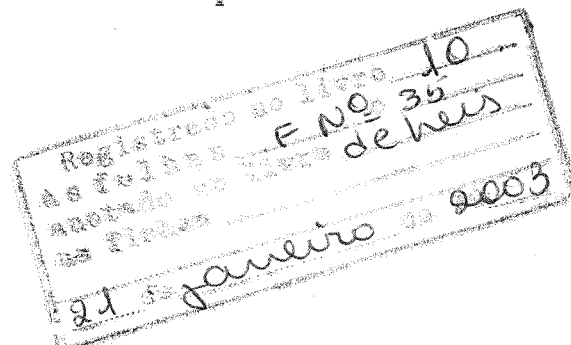 Registrado no livro 10
As folhas F Nº 35
anotado no livro de Leis
as fichas
21 de janeiro de 2003